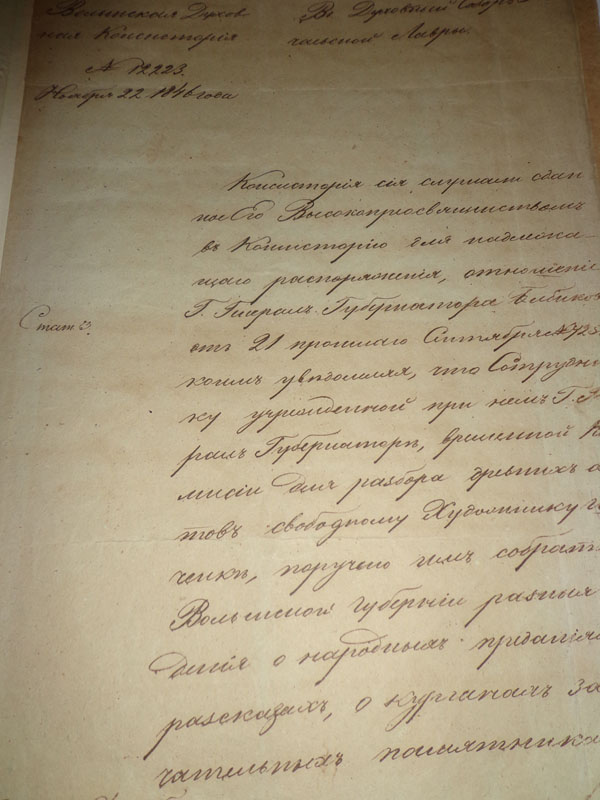 Волынская Духов-
ная Консисторія
№ 12223.
Ноября 22 1846 года
Въ Духовный Соборъ
чаевской Лавры.
Консисторія сія слушали сдан
ное Его Высокопреосвященствомъ
въ Консисторію для надлежа-
щаго распоряженія, отношеніе
Г. Генералъ Губернатора Бибиков
Стат. 3.
отъ 21 прошлаго Сентября № 725
коимъ увѣдомляя, что Сотрудни
ку учрежденной при немъ Г.
ралъ Губернаторѣ, временной К
мисіи для разбора древнихъ а
товъ свободному Художнику
ченкѣ, поручено имъ собрать
Волынской губерніи разныя
дѣнія о народныхъ преданія
разсказахъ, о курганахъ за
чательныхъ памятника